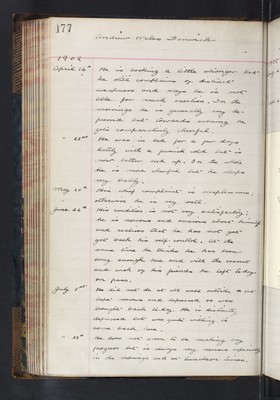 177
Andrew Wilson Fenwick
1902
April 14th He is looking a little stronger but
he still complains of distinct
weakness and says he is not
able for much exertion. In the
mornings he is generally very de-
pressed but towards evening he
gets comparatively cheerful.
- 22nd He was in bed for a few days
lately with a general cold but is
now better and up. On the whole
he is more cheerful but he sleeps
very badly.
May 20th His chief complaint is sleeplessness;
otherwise he is very well.
June 22nd His condition is not very satisfactory;
he is nervous and anxious about himself
and realises that he has not yet
got back his self-control. At the
same time he thinks he has been
long enough here and with the consent
and wish of his friends he left to-day
on pass.
July 1st He did not do at all well outside he be-
came nervous and depressed so was
brought back to-day. He is distinctly
depressed but was quite willing to
come back here.
- 19th He does not seem to be making any
progress but is always very nervous especially
in the mornings and at luncheon time.